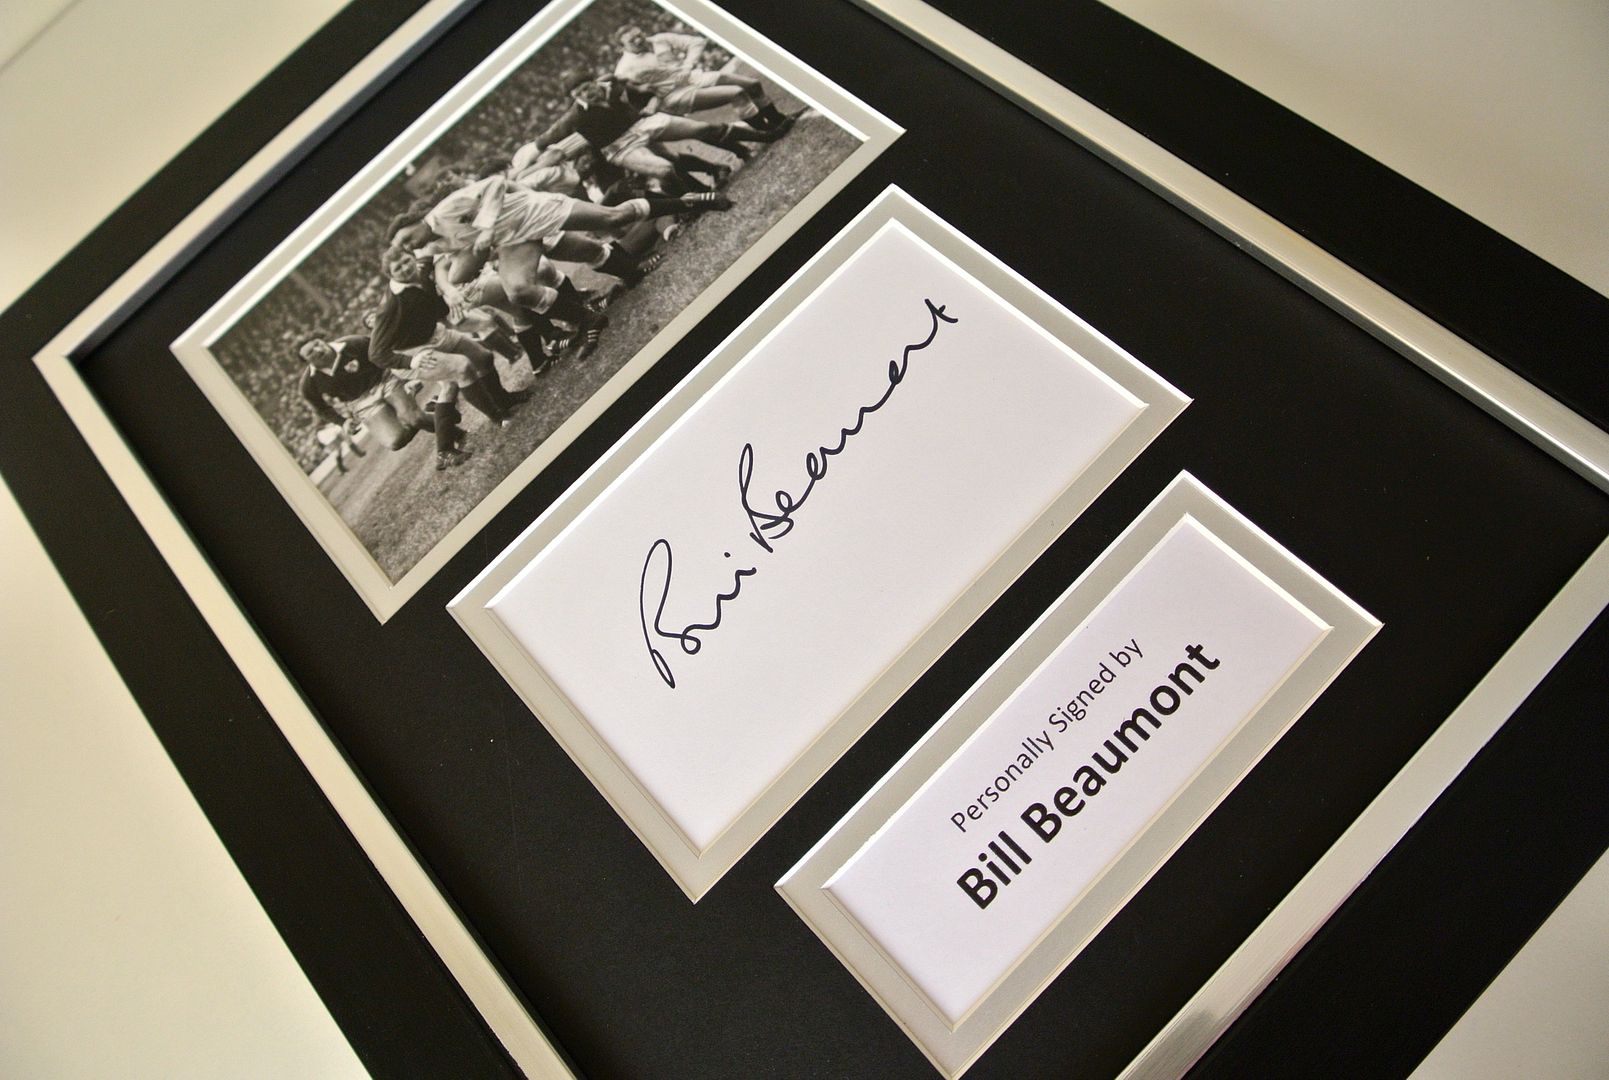 Bill Beaumont
Personally Signed by
Bill Beaumont